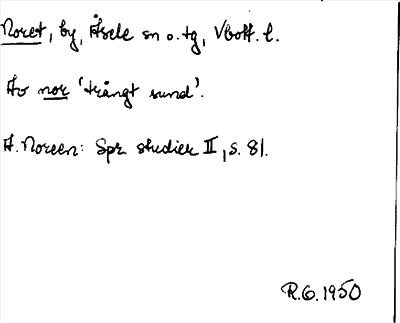 Noret, by, Åsele sn o. tg, Vbott. l.
Av nor 'trångt sund'.
A. Noreen: Spr. studier II, s. 81.
R.G. 1950